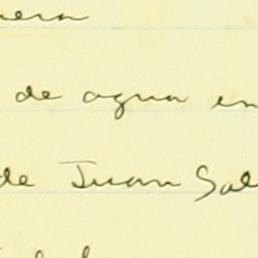 de agua en
de Juan Sal